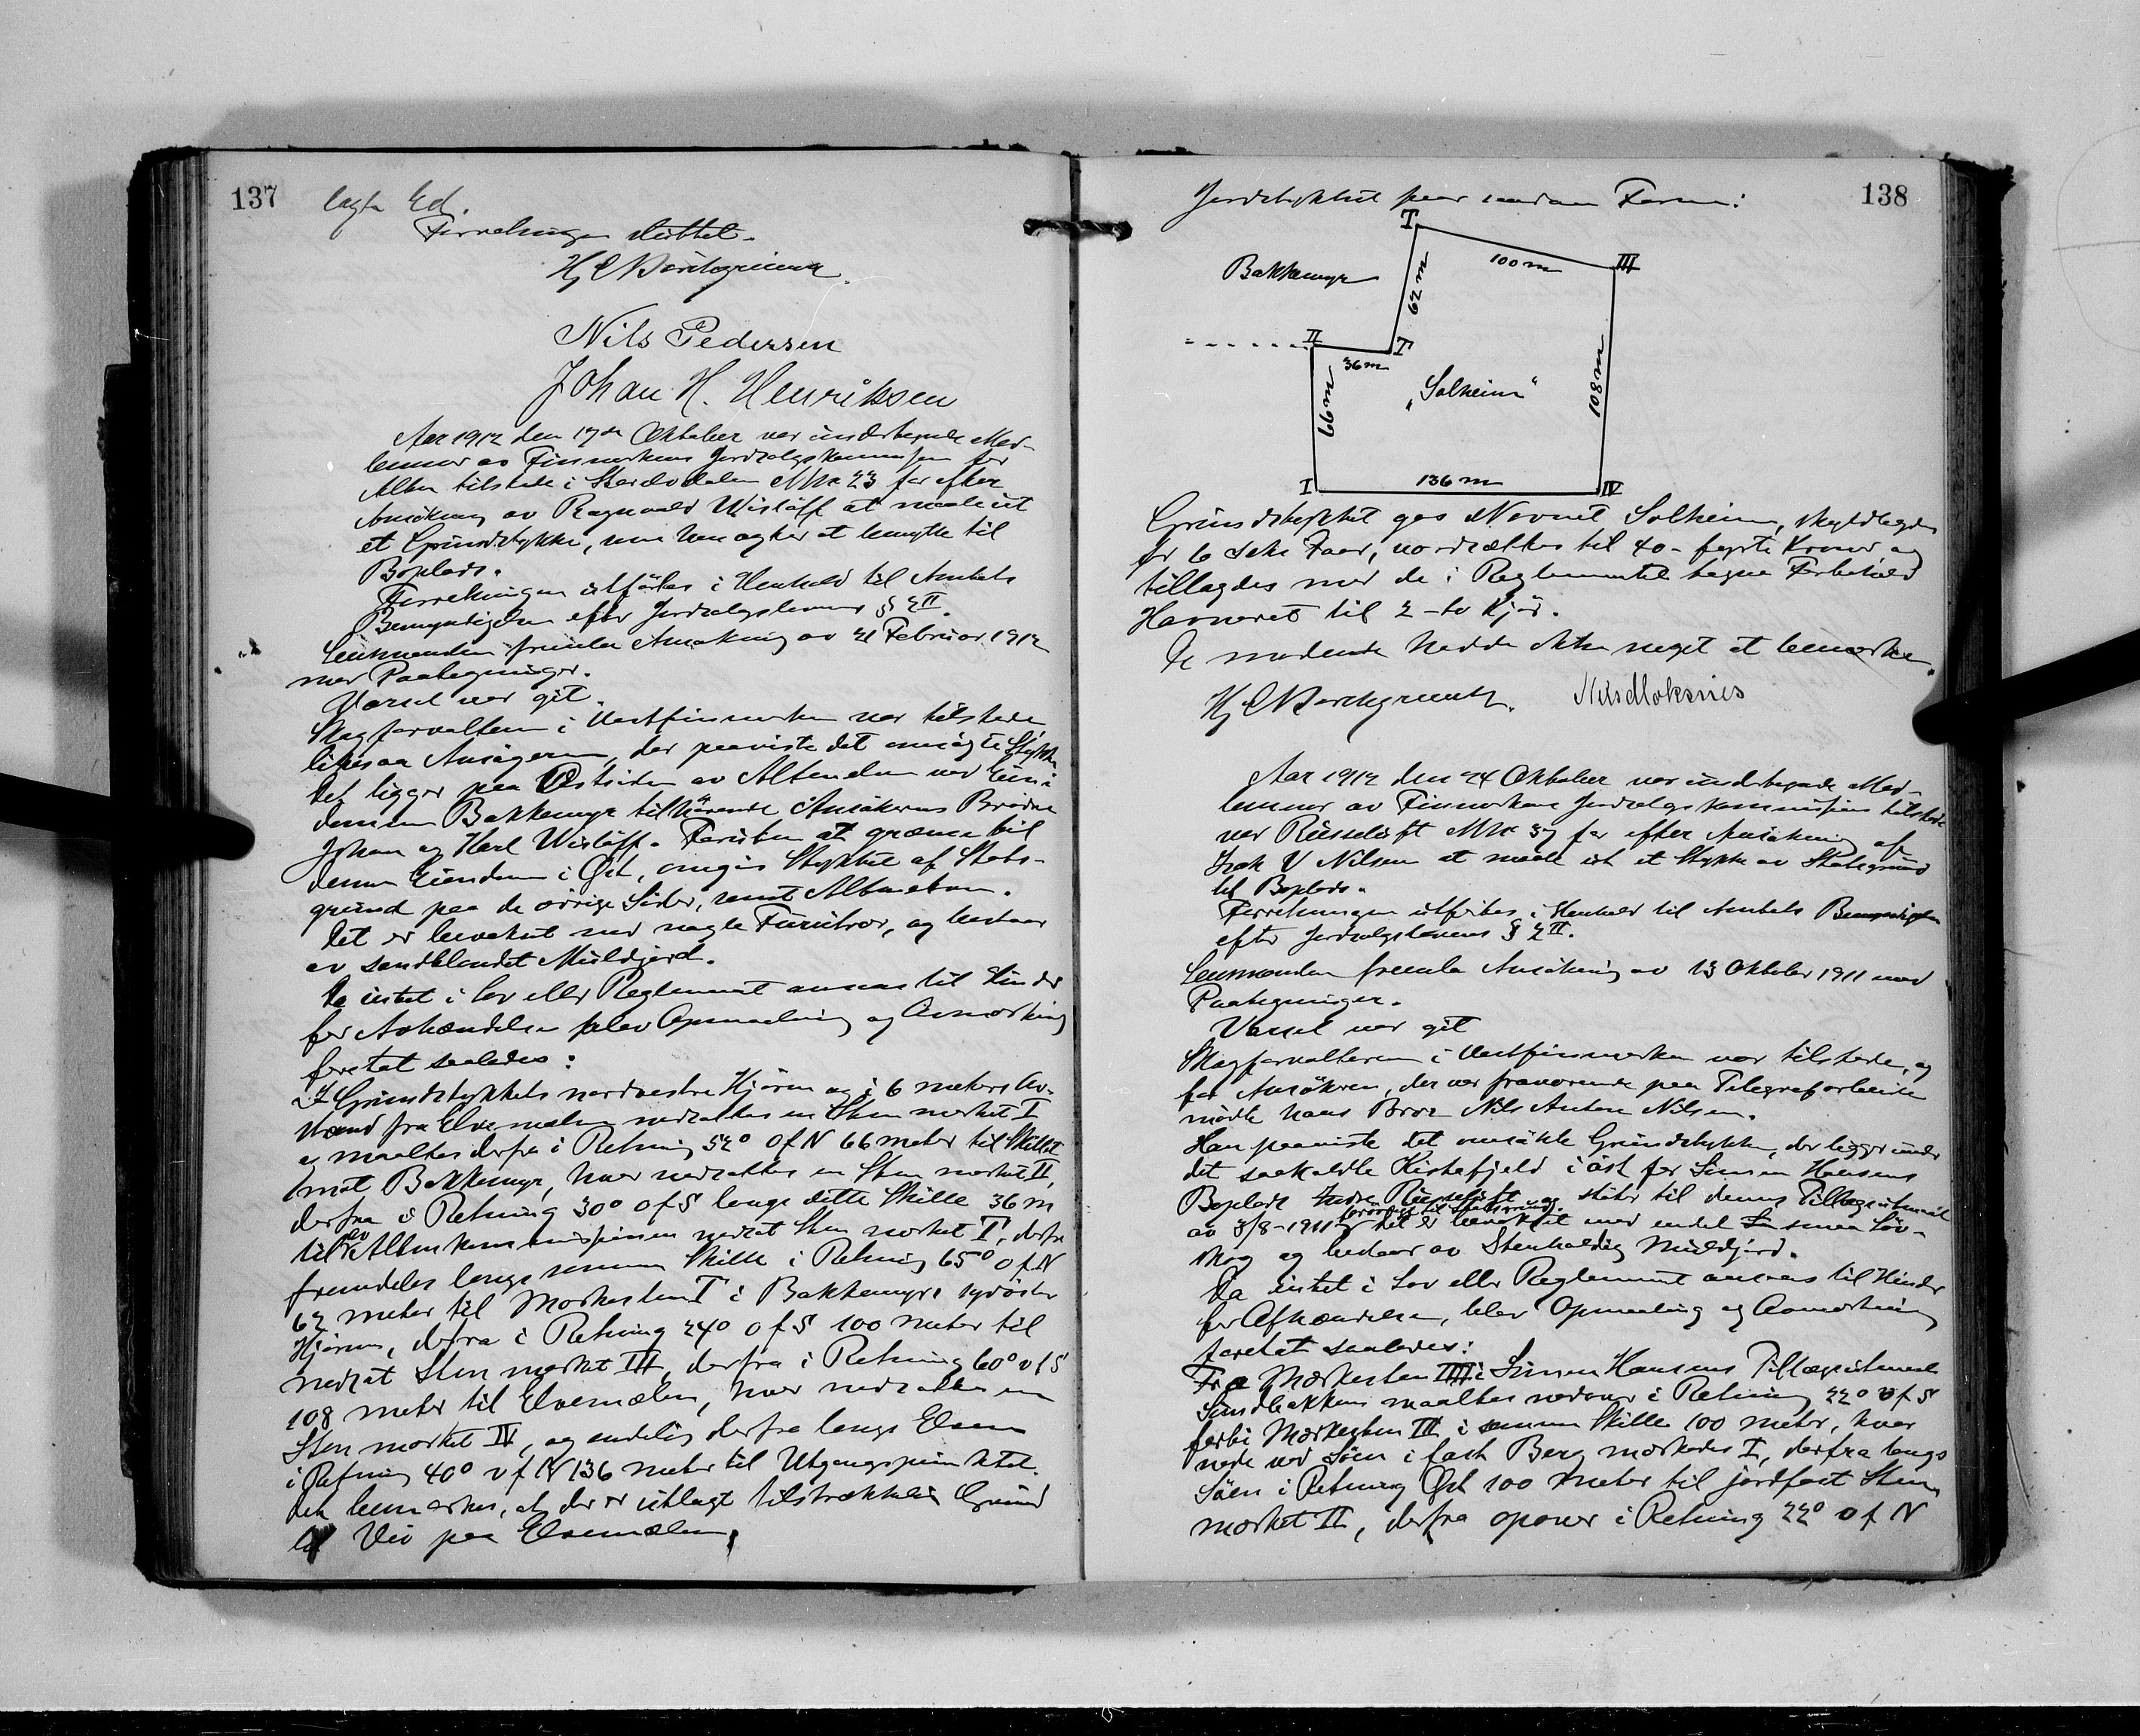 137
lagte Ed.
Forretningen sluttet.
Hj C Borchgrevink.
Nils Pedersen
Johan H. Henriksen
Aar 1912 den 17de Oktober var undertegnede Med-
lemmer av Finmarkens Jordsalgskommisjon for
Alten tilstede i Skardvdalen M No 23 for efter
Ansökning av Ragnvald Wisløff at maale ut
et Grundstykke, som han agter at benytte til
Boplads.
Forretningen utföres i Henhold til Amtets
Bemyndigelse efter Jordsalgslovens § 2 II.
Lensmanden fremla Ansøkning av 21 Februar 1912
med Paategninger.
Varsel var git.
Skogforvalteren i Vestfinmarken var tilstede
likesaa Ansögeren, der paaviste det omsögte Stykke
Det ligger paa Østsiden av Altenelven ved Eien-
dommen Bakkemyr tilhørende Ansökerens Brödre
Johan og Karl Wisløff. Foruten at grænse til
denne Eiendom i Øst, omgis Stykket af Stats-
grund paa de övrige Sider, samt Altenelven.
Det er bevokset med nogle Furutrær, og bestaar
av sandblandet Muldjord.
Da intet i Lov eller Reglement ansaaes til Hinder
for Avhændelse blev Opmaaling og Avmerking
foretat saaledes:
I Grundstykkets nordvestre Hjörne og i 6 meters Av-
stand fra Elvemælen nedsattes en Sten merket I
og maaltes derfra i Retning 52° O f N 66 meter til Skillet
mot Bakkemyr, hvor nedsattes en Sten merket II,
derfra i Retning 30° O f S langs dette Skille 36 m
til av Altenkommisjonen nedsat Sten merket I, derfra
fremdeles langs samme Skille i Retning 65° O f N
62 meter til Merkesten I i Bakkemyrs sydöstre
Hjörne, derfra i Retning 24° O f S 100 meter til
nedsat Sten merket III, derfra i Retning 60° v f S
108 meter til Elvemælen, hvor nedsattes en
Sten merket IV, og endelig derfra langs Elven
i Retning 40° v f N 136 meter til Utgangspunktet.
Det bemerkes, at der er utlagt tilstrækkelig Grund
til Vei paa Elvemælen.
138
Jordstykket faar saadan Form:
I
100 m
III
Bakkemyr
62 m
II
I
36 m
66 m
„Solheim“
108 m
I
136 m
IV
Grundstykket gas Navnet Solheim, skyldlagdes
for 6 seks Öre, værdsættes til 40 - fyrti Kroner og
tillagdes med de i Reglementet tagne Forbehold
Havneret til 2 - to Kjör.
De mødende hadde ikke noget at bemerke.
Hj C Borchgrevink. Nils Moksnes
Aar 1912 den 24 Oktober var undertegnede Med-
lemmer av Finmarkens Jordsalgskommisjon tilstede
ved Russeluft M No 37 for efter Ansökning af
Isak V Nilsen at maale ut et Stykke av Statsgrund
til Boplads.
Forretningen utföres i Henhold til Amtets Bemyndigelse
efter Jordsalgslovens § 2 II.
Lensmanden fremla Ansökning av 13 Oktober 1911 med
Paategninger.
Varsel var git
Skogforvalteren i Vestfinmarken var tilstede, og
for Ansökeren, der var fraværende paa Telegrafarbeide
mödte hans Bror Nils Anton Nilsen.
Han paaviste det omsökte Grundstykke, der ligger under
det saakaldte Kistefjeld i öst for Simon Hansens
Boplads Indre Russeluft og støter til dennes Tillægsutmaal
av 3/8-1911 forövrig til Statsgrund. Det er bevokset med endel smaa Löv-
skog og bestaar av Stenholdig Muldjord.
Da intet i Lov eller Reglement ansaaes til Hinder
for Afhændelse, blev Opmaaling og Avmerkning
foretat saaledes:
Fra Merkesten IIII i Simon Hansens Tillægsutmaal
Sandbakken maaltes nedover i Retning 22° v f S
forbi Merkesten III i samme Skille 100 meter, hvor
nede ved Söen i fast Berg merkedes I, derfra langs
Söen i Retning Øst 100 meter til jordfast Sten
merket II, derfra opover i Retning 22° o f N